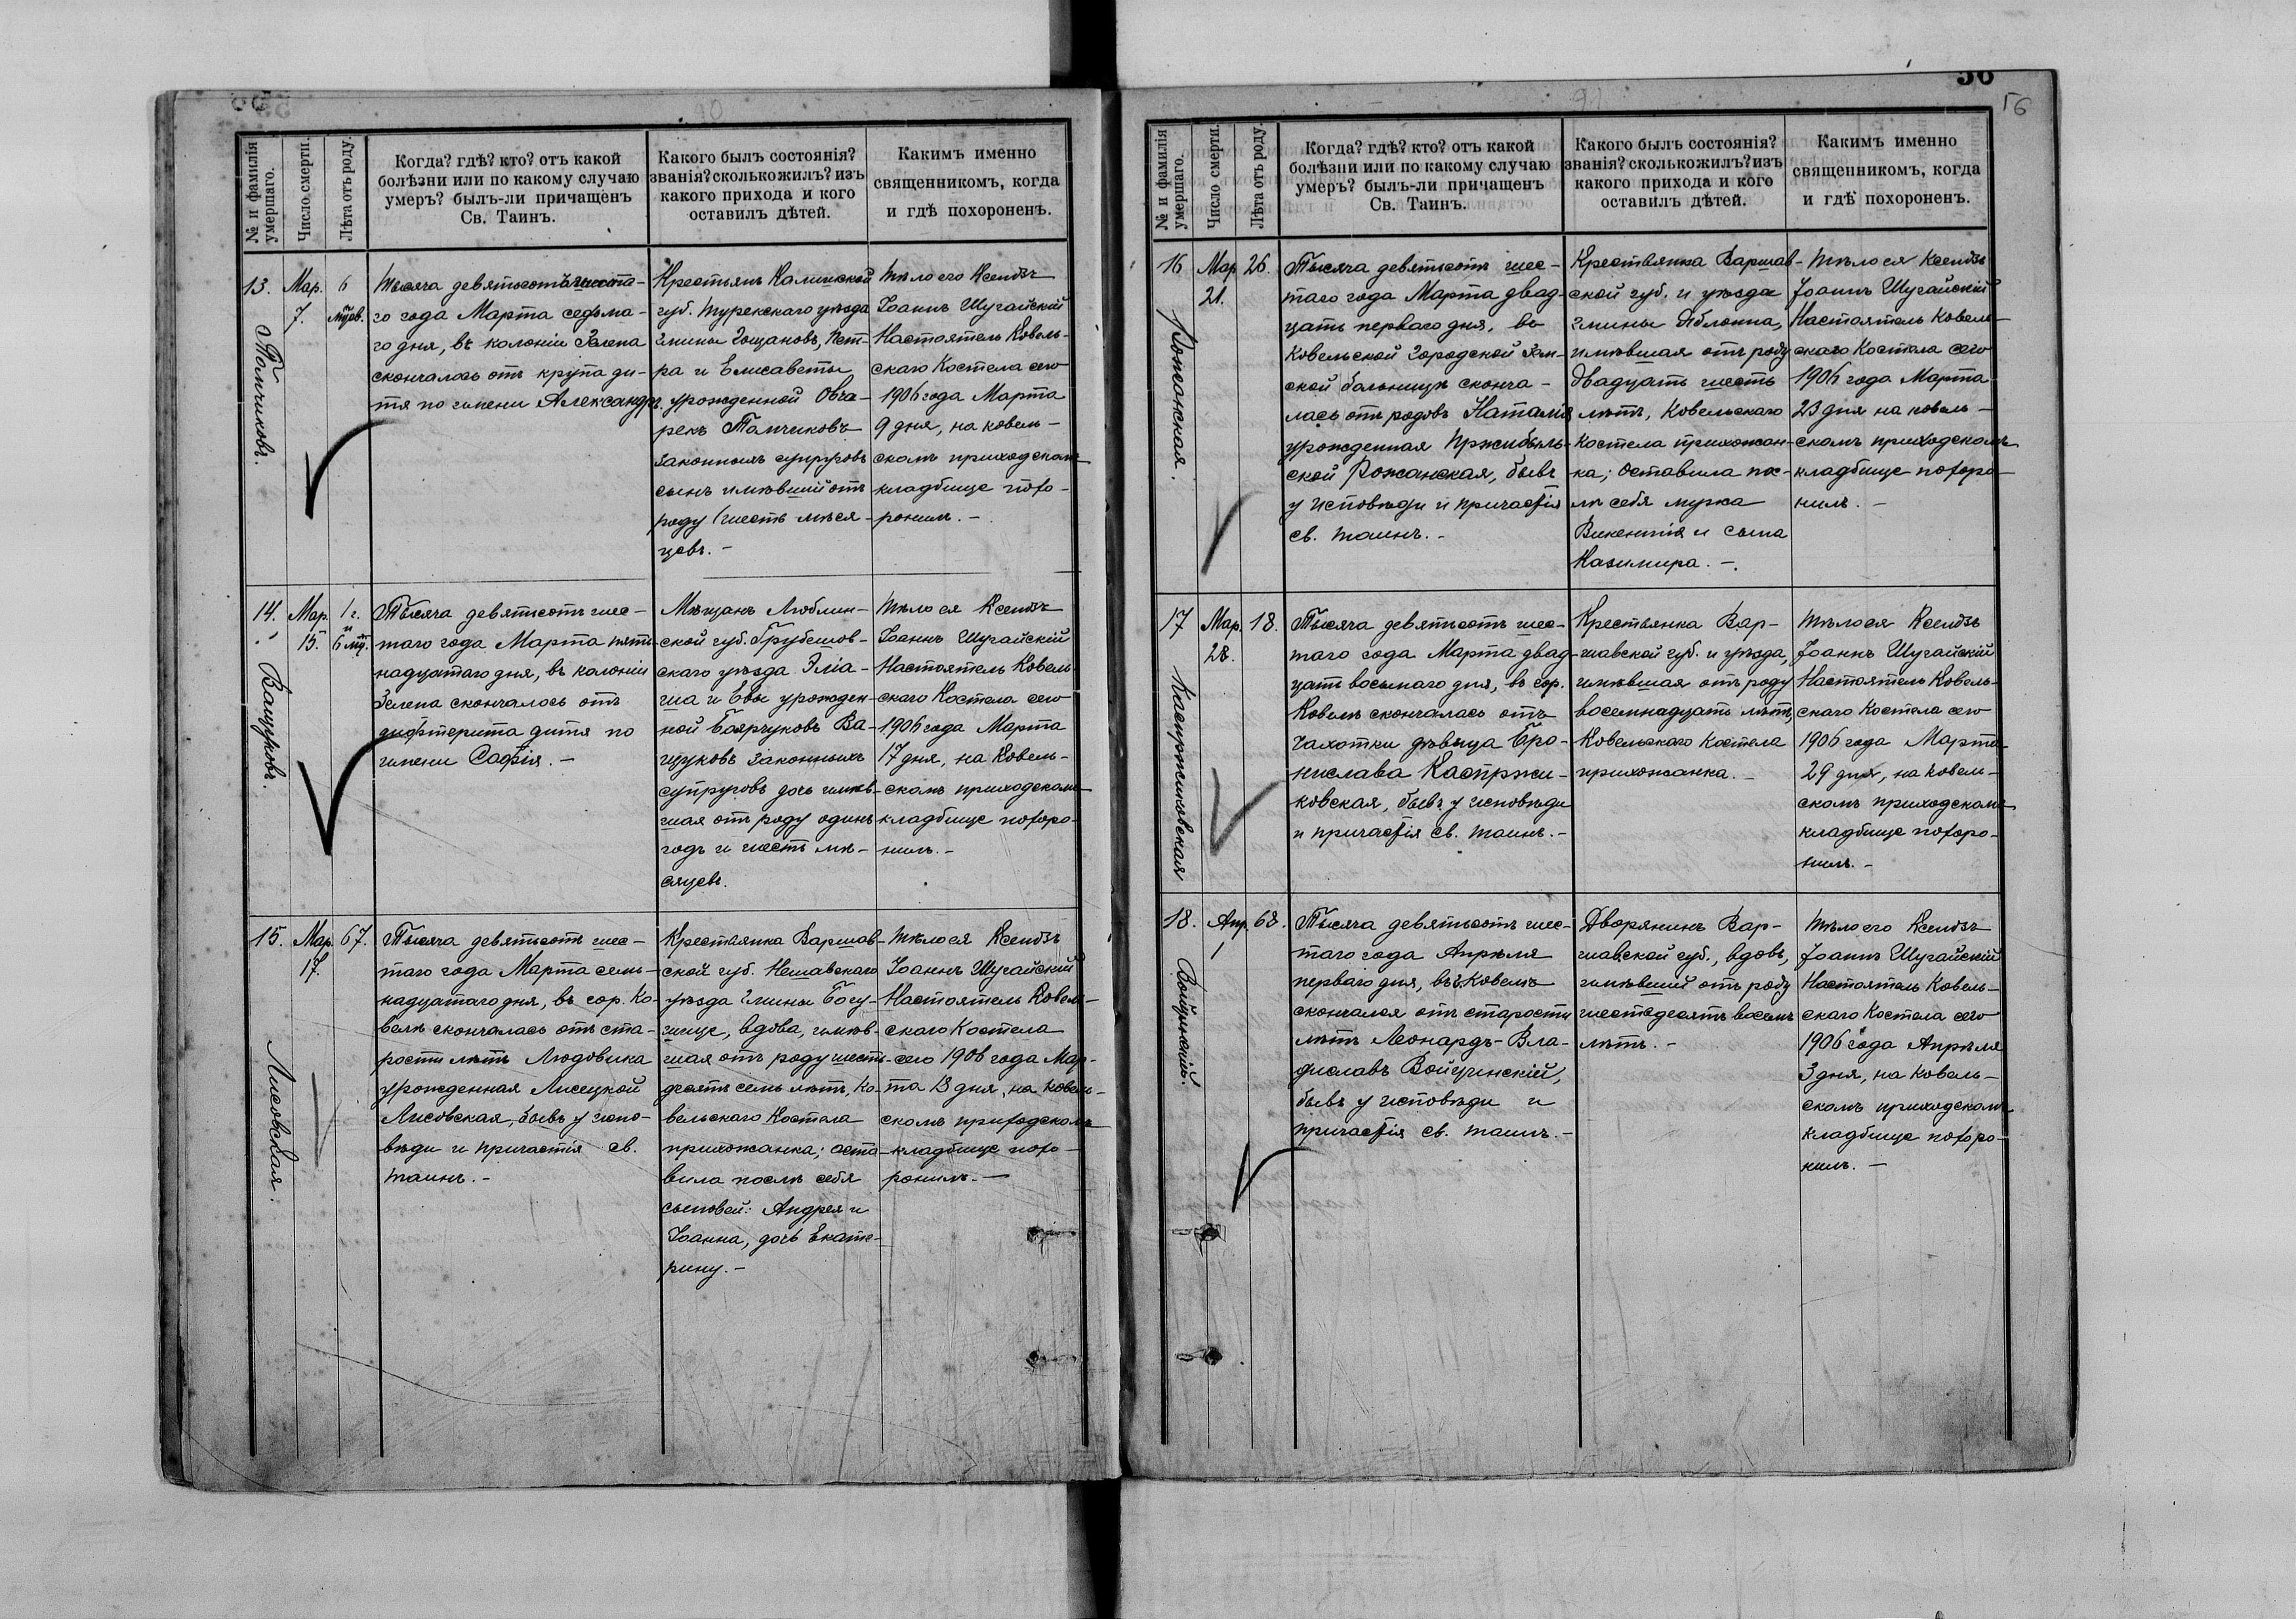 90
№ и фамилія умершаго.
Число смерти.
Лѣта отъ роду.
Когда? гдѣ? кто? отъ какой
болѣзни или по какому случаю
умеръ? былъ-ли причащенъ
Св. Таинъ.
Какого былъ состоянія?
званія? сколько жилъ? изъ
какого прихода и кого
оставилъ дѣтей.
Какимъ именно
священникомъ, когда
и гдѣ похороненъ.
13.
Томчиковъ.
Мар.
7.
6
мѣсяц.
Тысяча девятьсотъ шеста-
го года Марта седьма-
го дня, въ колоніи Зелена
скончалось отъ крупа ди-
тя по имени Александръ.
Крестьянъ Калишской
губ. Турекскаго уѣзда
гмины Гощановъ, Пет-
ра и Елисаветы
урожденной Овча-
рекъ Томчиковъ
законныхъ супруговъ
сынъ имѣвшій отъ
роду шесть мѣся-
цевъ. –
Тѣло его Ксендзъ
Іоаннъ Шугайскій
Настоятель Ковель-
скаго Костела сего
1906 года Марта
9 дня, на ковель-
скомъ приходскомъ
кладбище похо-
ронилъ. –
14.
Ващуковъ.
Мар.
15.
1 г.
и
6 мц.
Тысяча девятьсотъ шес-
таго года Марта пят-
надцатаго дня, въ колоніи
Зелена скончалось отъ
дифтерита дитя по
имени Софія. –
Мѣщанъ Люблин-
ской губ. Грубешов-
скаго уѣзда Эліа-
ша и Евы урожден-
ной Боярчуковъ Ва-
щуковъ законныхъ
супруговъ дочь имѣв-
шая отъ роду одинъ
годъ и шесть мѣ-
сяцевъ.
Тѣло ея Ксендзъ
Іоаннъ Шугайскій
Настоятель Ковель-
скаго Костела сего
1906 года Марта
17 дня, на Ковель-
скомъ приходскомъ
кладбище похоро-
нилъ. –
15.
Лисовская.
Мар.
17.
67.
Тысяча девятьсотъ шес-
таго года Марта семь-
надцатаго дня, въ гор. Ко-
велѣ скончалась отъ ста-
рости лѣтъ Людовика
урожденная Лисецкой
Лисовская, бывъ у испо-
вѣди и причастія св.
таинъ. –
Крестьянка Варшав-
ской губ. Нешавскаго
уѣзда гмины Богу-
шице, вдова, имѣв-
шая отъ роду шесть-
десятъ семь лѣтъ, Ко-
вельскаго Костела
прихожанка; оста-
вила послѣ себя
сыновей: Андрея и
Іоанна, дочь Екате-
рину. –
Тѣло ея Ксендзъ
Іоаннъ Шугайскій
Настоятель Ковель-
скаго Костела
сего 1906 года Мар-
та 18 дня, на ковель-
скомъ приходскомъ
кладбище похо-
ронилъ. –
91
56
56
№ и фамилія умершаго.
Число смерти.
Лѣта отъ роду.
Когда? гдѣ? кто? отъ какой
болѣзни или по какому случаю
умеръ? былъ-ли причащенъ
Св. Таинъ.
Какого былъ состоянія?
званія? сколько жилъ? изъ
какого прихода и кого
оставилъ дѣтей.
Какимъ именно
священникомъ, когда
и гдѣ похороненъ.
16
Рожанская.
Мар
21.
26.
Тысяча девятьсотъ шес-
таго года Марта двад-
цать перваго дня, въ
Ковельской городской зем-
ской больницѣ сконча-
лась отъ родовъ Наталія
урожденная Пржибыль-
ской Рожанская, бывъ
у исповѣди и причастія
св. таинъ. –
Крестьянка Варшав-
ской губ. и уѣзда
гмины Яблонна,
имѣвшая отъ роду
двадцать шесть
лѣтъ, Ковельскаго
костела прихожан-
ка; оставила пос-
лѣ себя мужа
Викентія и сына
Казимира. –
Тѣло ея Ксендзъ
Іоаннъ Шугайскій
Настоятель Ковель-
скаго Костела сего
1906 года Марта
23 дня на ковель-
скомъ приходскомъ
кладбище похоро-
нилъ. –
17
Каспржиковская
Мар.
28.
18.
Тысяча девятьсотъ шес-
таго года Марта двад-
цать восьмаго дня, въ гор.
Ковелѣ скончалась отъ
чахотки дѣвица Бро-
нислава Каспржи-
ковская, бывъ у исповѣди
и причастія св. таинъ. –
Крестьянка Вар-
шавской губ. и уѣзда,
имѣвшая отъ роду
восемнадцать лѣтъ,
Ковельскаго Костела
прихожанка. –
Тѣло ея Ксендзъ
Іоаннъ Шугайскій
Настоятель Ковель-
скаго Костела сего
1906 года Марта
29 дня, на Ковель-
скомъ приходскомъ
кладбище похоро-
нилъ. –
18.
Войцинскій.
Апр.
1
68.
Тысяча девятьсотъ шес-
таго года Апрѣля
перваго дня, въ г. Ковелѣ
скончался отъ старости
лѣтъ Леонардъ-Вла-
диславъ Войцинскій,
бывъ у исповѣди и
причастія св. таинъ. –
Дворянинъ Вар-
шавской губ., вдовъ,
имѣвшій отъ роду
шестьдесятъ восемь
лѣтъ. –
Тѣло его Ксендзъ
Іоаннъ Шугайскій
Настоятель Ковель-
скаго Костела сего
1906 года Апрѣля
3 дня, на Ковель-
скомъ приходскомъ
кладбище похоро-
нилъ. –